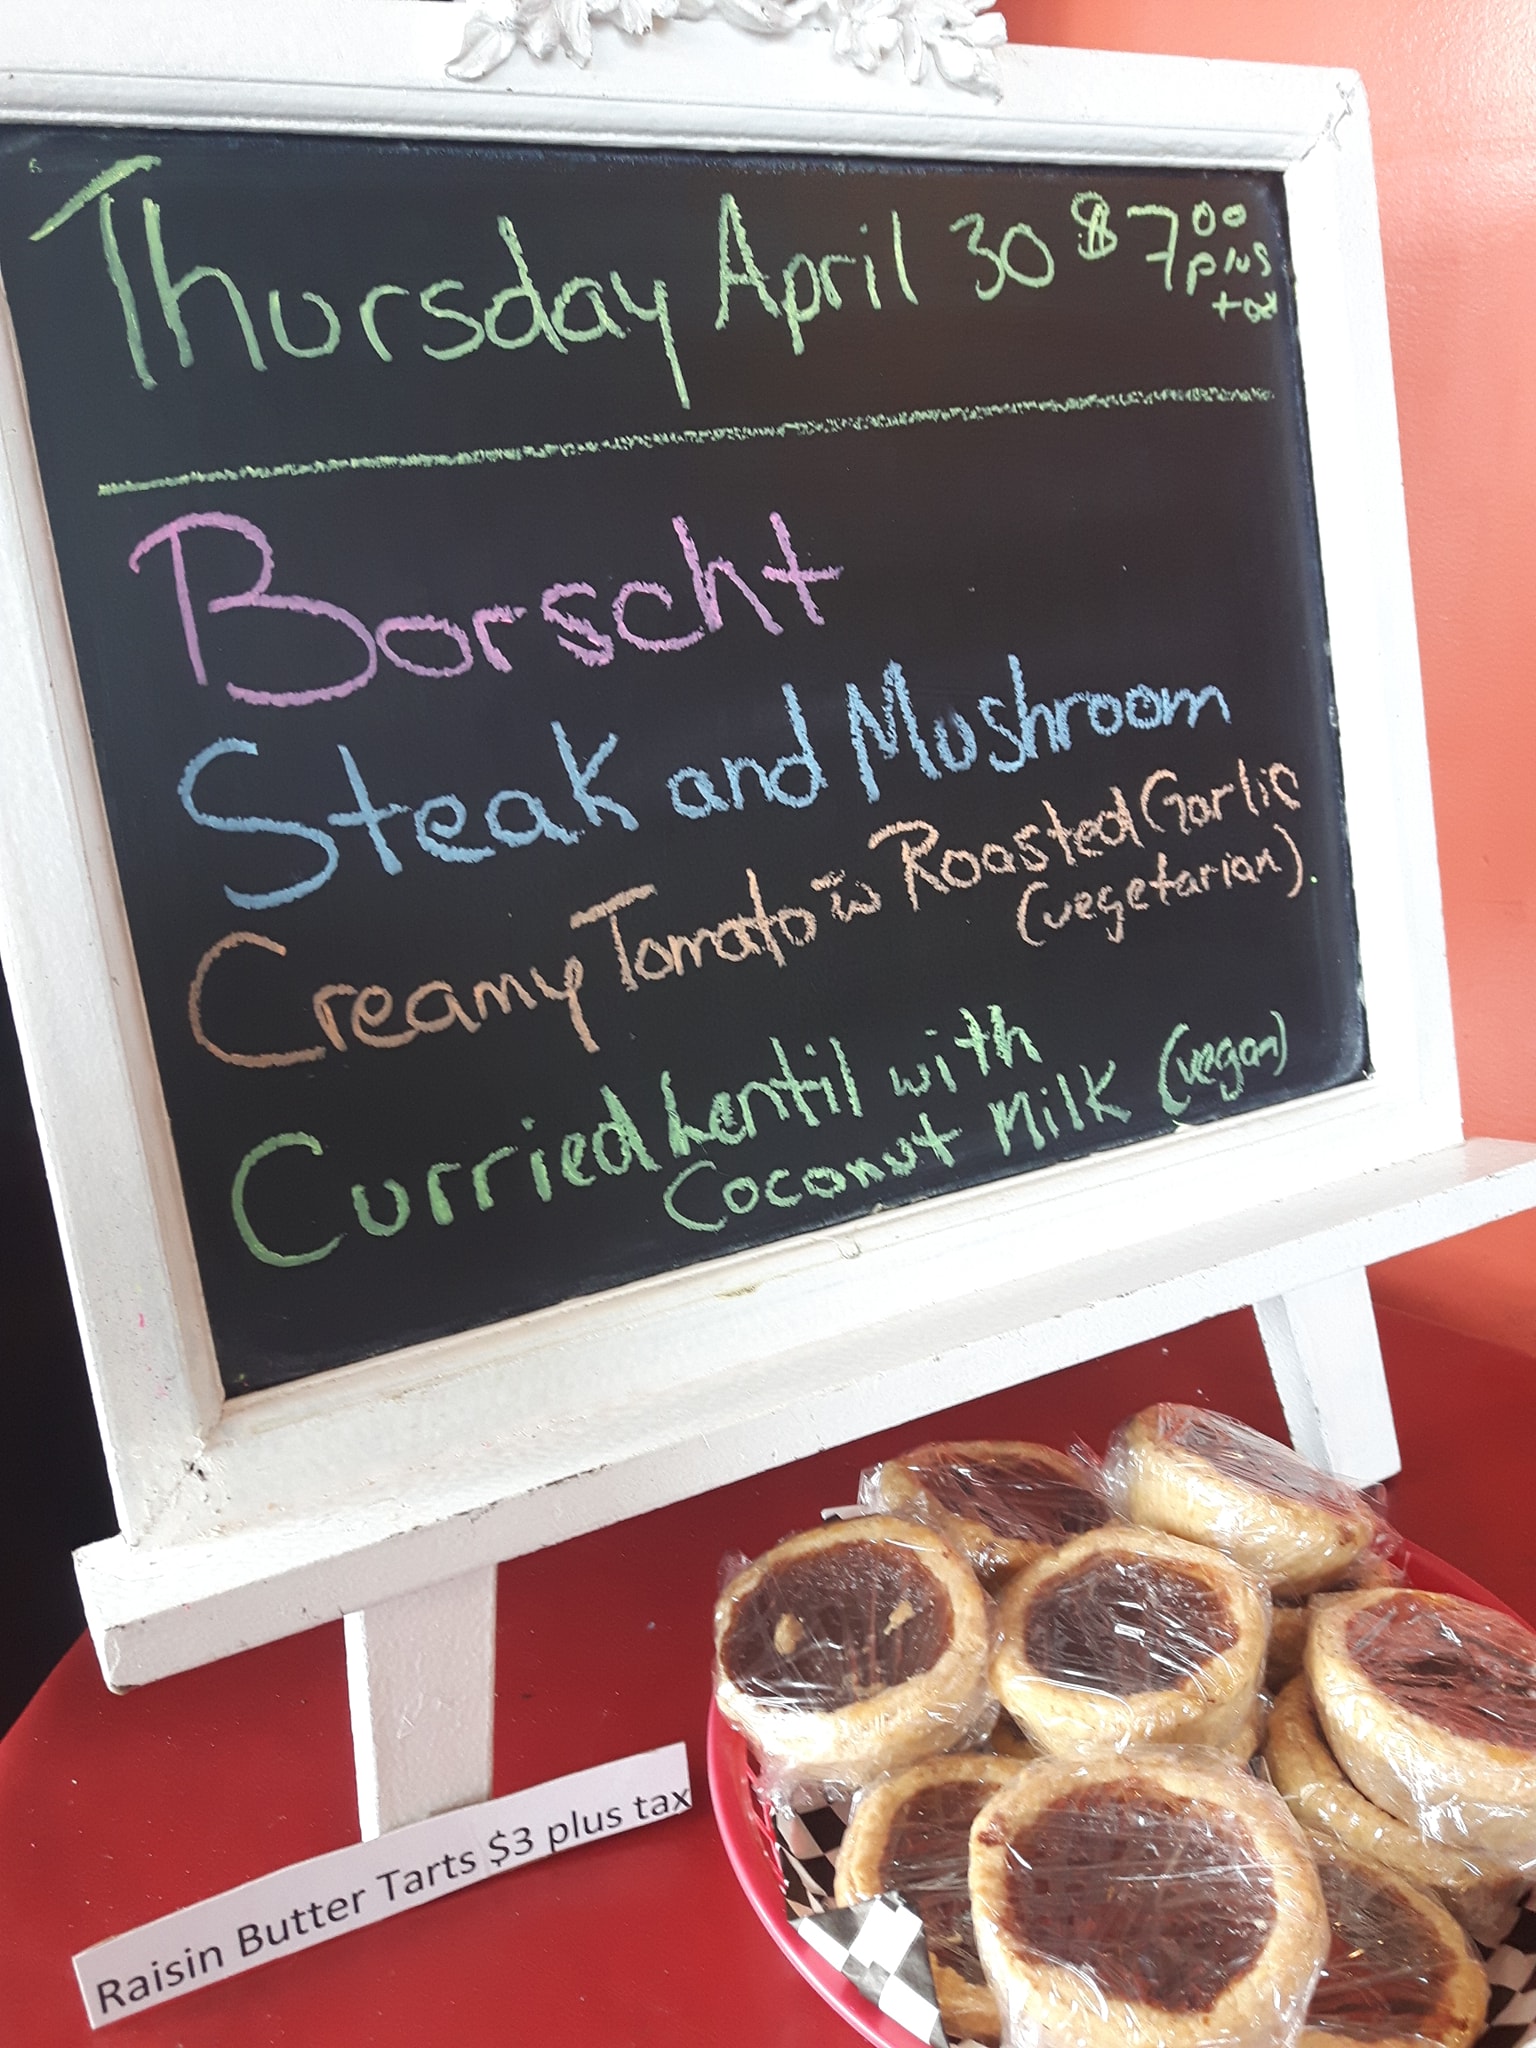 Thursday April 30 $7.00 plus tax
Borscht
Steak and Mushroom
Creamy Tomato w Roasted Garlic
(vegetarian).
Curried Lentil with
Coconut Milk (vegan)
Raisin Butter Tarts $3 plus tax